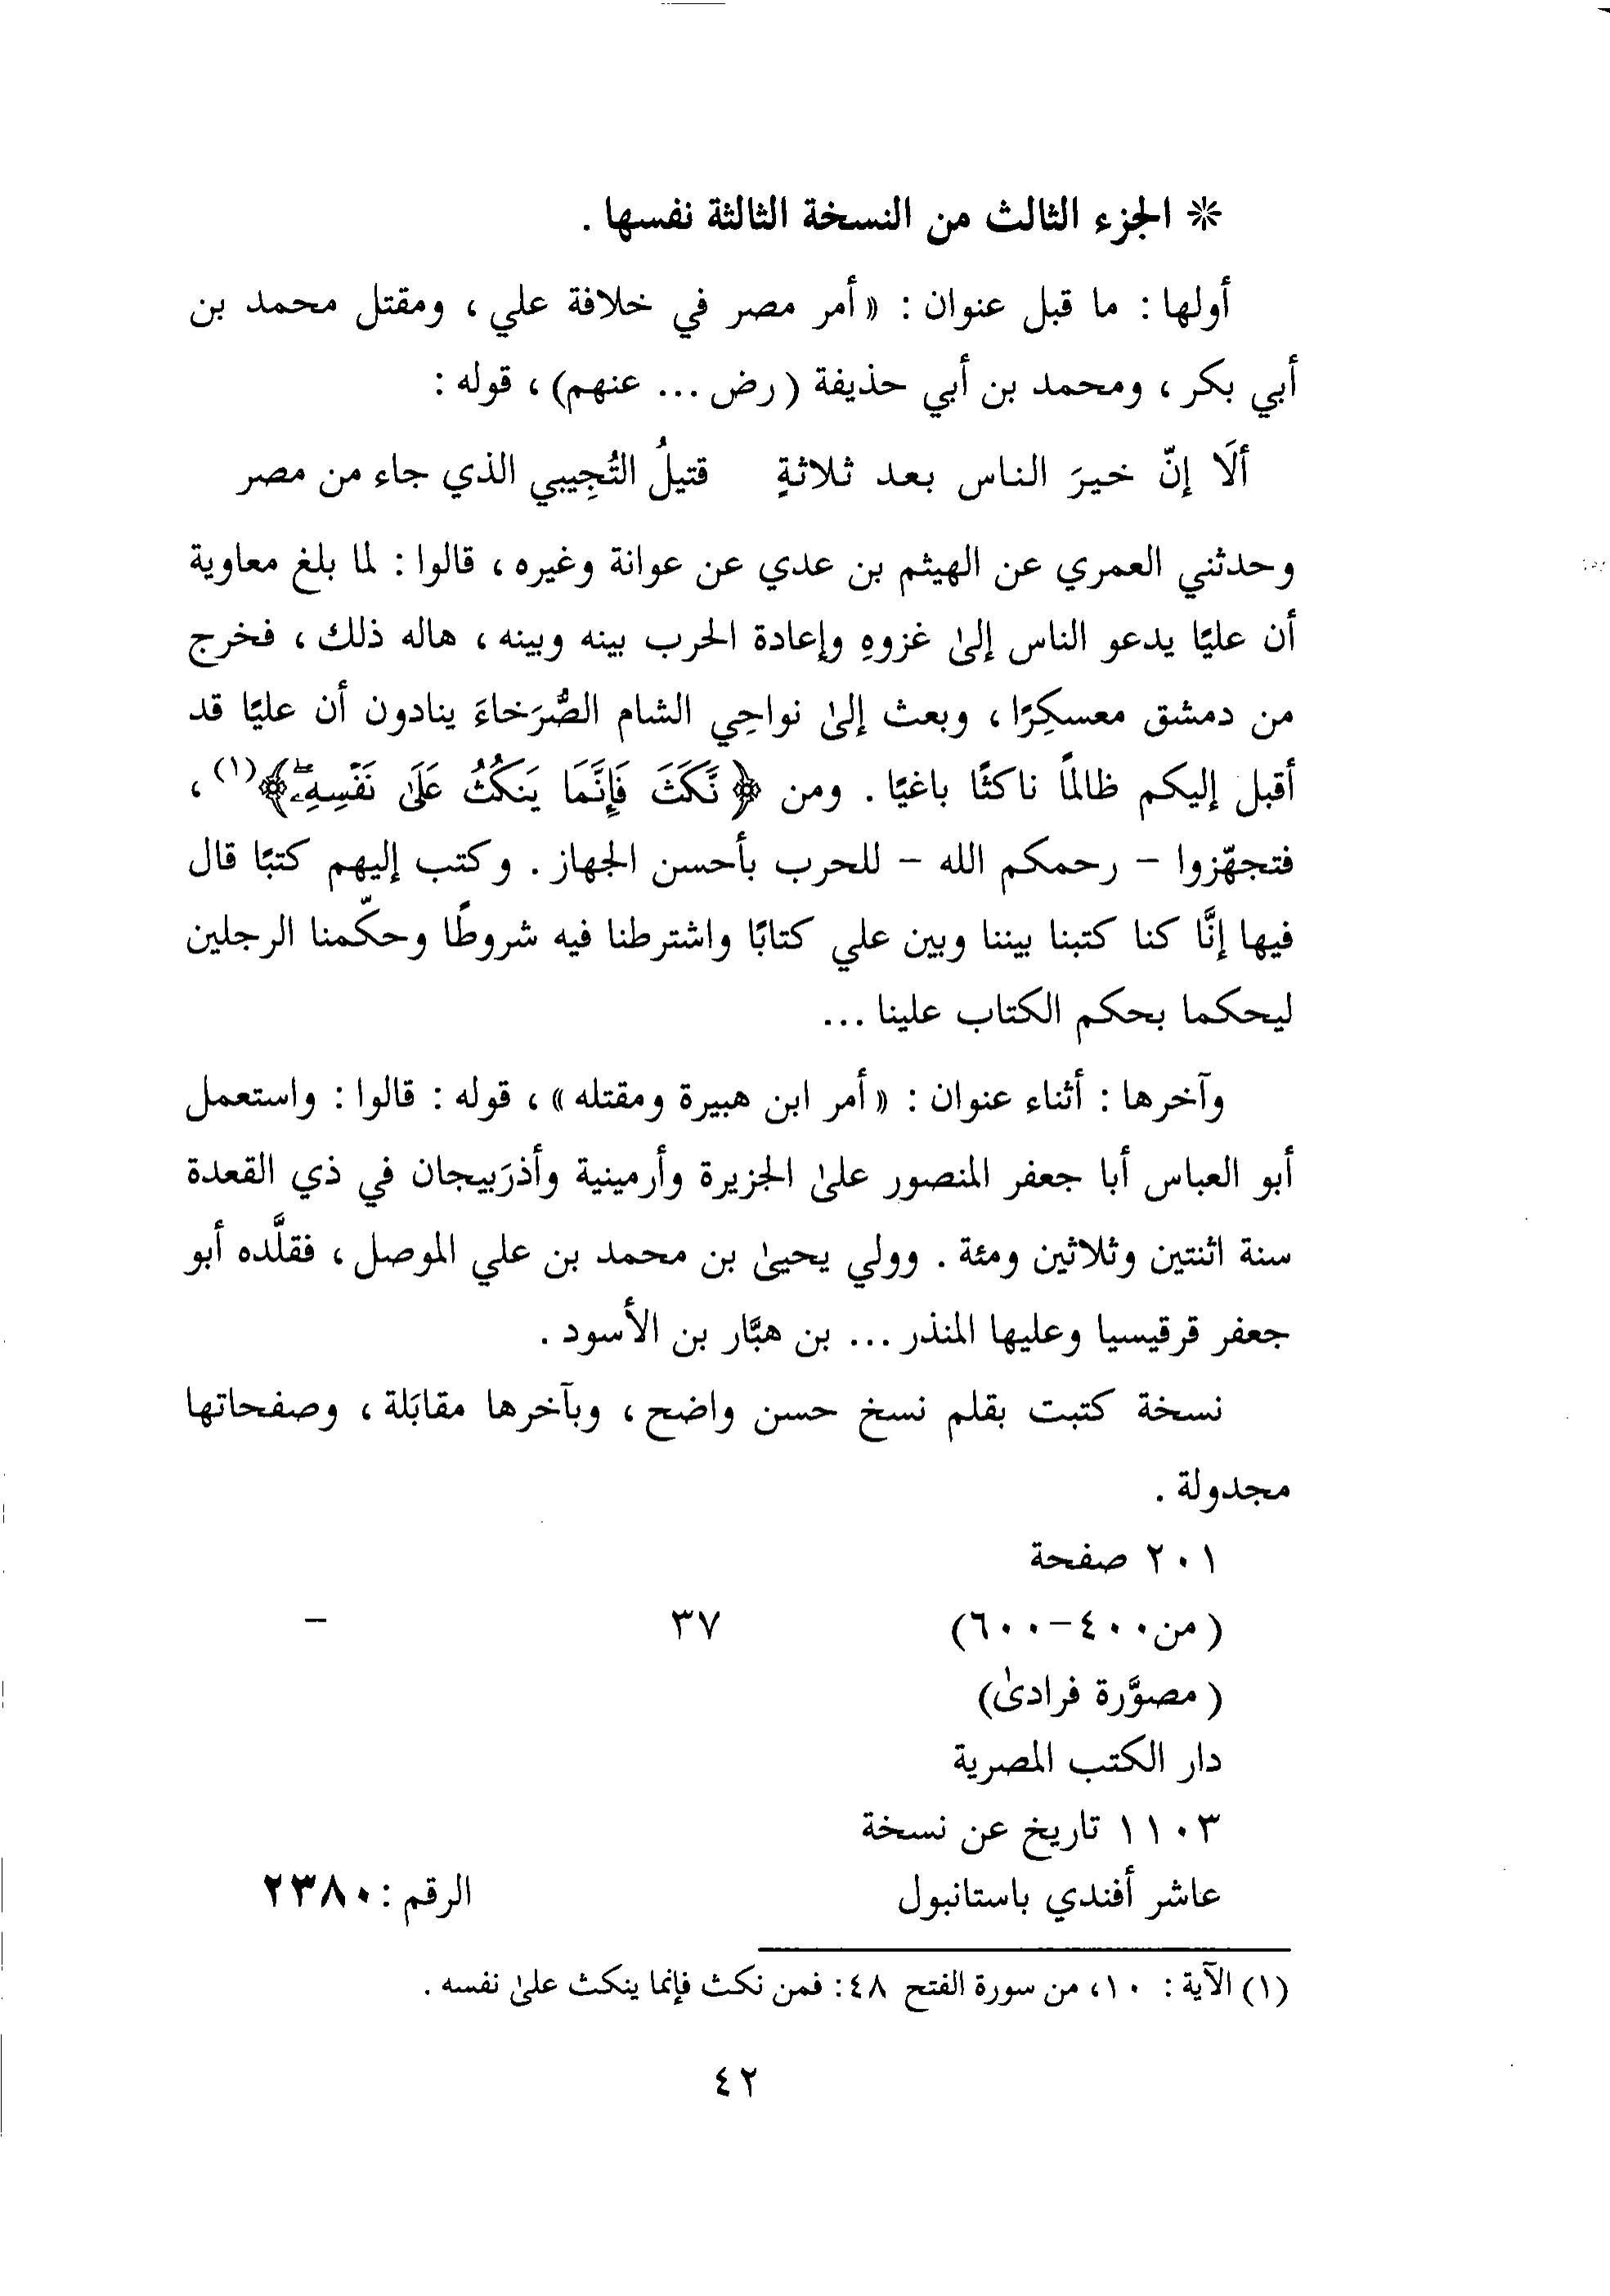 * الجزء الثالث من النسخة الثالثة نفسها .
أولها : ما قبل عنوان : « أمر مصر في خلافة علي ، ومقتل محمد بن
أبي بكر ، ومحمد بن أبي حذيفة ( رض ... عنهم ) ، قوله :
ألَا إنّ خيرَ الناس بعد ثلاثةٍ قتيلُ التُجِيبي الذي جاء من مصر
وحدثني العمري عن الهيثم بن عدي عن عوانة وغيره ، قالوا : لما بلغ معاوية
أن عليًا يدعو الناس إلىٰ غزوهِ وإعادة الحرب بينه وبينه ، هاله ذلك ، فخرج
من دمشق معسكِرًا ، وبعث إلىٰ نواحِي الشام الصُّرَخاءَ ينادون أن عليًا قد
أقبل إليكم ظالمًا ناكثًا باغيًا . ومن ﴿ نَّكَثَ فَإِنَّمَا يَنكُثُ عَلَىٰ نَفْسِهِۦۖ ﴾(١) ،
فتجهّزوا - رحمكم الله - للحرب بأحسن الجهاز . وكتب إليهم كتبًا قال
فيها إنَّا كنا كتبنا بيننا وبين علي كتابًا واشترطنا فيه شروطًا وحكّمنا الرجلين
ليحكما بحكم الكتاب علينا ...
وآخرها : أثناء عنوان : « أمر ابن هبيرة ومقتله » ، قوله : قالوا : واستعمل
أبو العباس أبا جعفر المنصور علىٰ الجزيرة وأرمينية وأذرَبيجان في ذي القعدة
سنة اثنتين وثلاثين ومئة . وولي يحيىٰ بن محمد بن علي الموصل ، فقلَّده أبو
جعفر قرقيسيا وعليها المنذر ... بن هبَّار بن الأسود .
نسخة كتبت بقلم نسخ حسن واضح ، وبآخرها مقابَلة ، وصفحاتها
مجدولة .
٢٠١ صفحة
( من ٤٠٠-٦٠٠ ) ٣٧ -
( مصوَّرة فرادىٰ )
دار الكتب المصرية
١١٠٣ تاريخ عن نسخة
عاشر أفندي باستانبول الرقم : ٢٣٨٠
(١) الآية : ١٠ ، من سورة الفتح ٤٨ : فمن نكث فإنما ينكث علىٰ نفسه .
٤٢